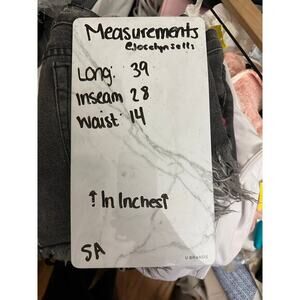 Measurements
@jocelynsells
Long: 39
Inseam 28
Waist: 14
↑ In Inches↑
5A
U BRANDS